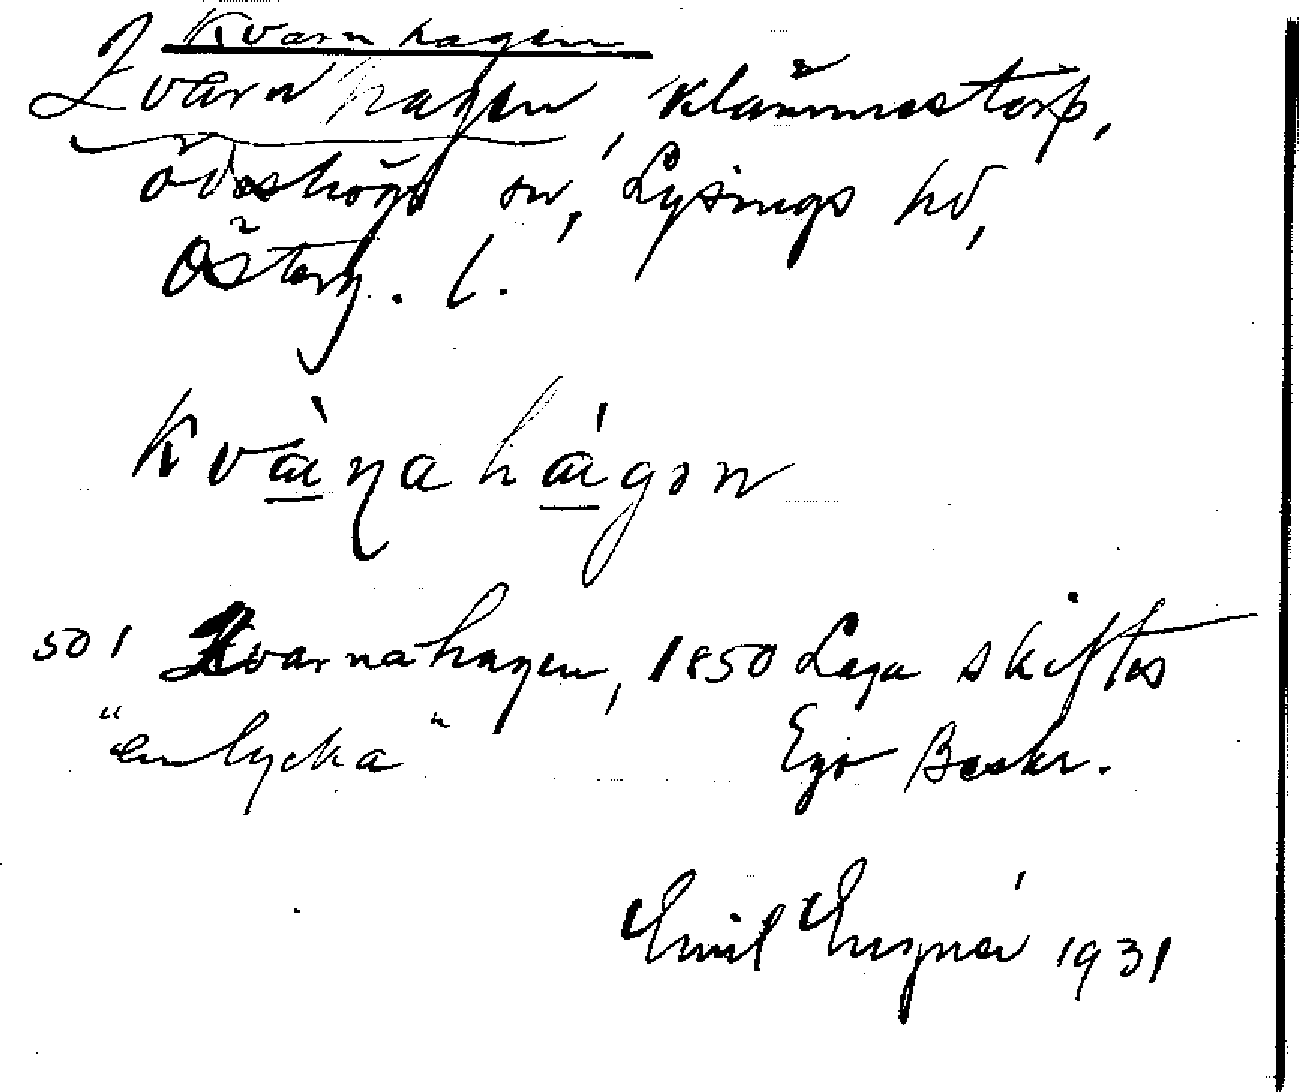 Kvarnhagen
Kvarnhagen, Klämmestorp,
Ödeshögs sn, Lysings hd,
Österg. l.
Kvàṇahágon
501 Kvarnahagen, 1850 Laga skiftes
"en lycka" Ego Beskr.
Emil 1931